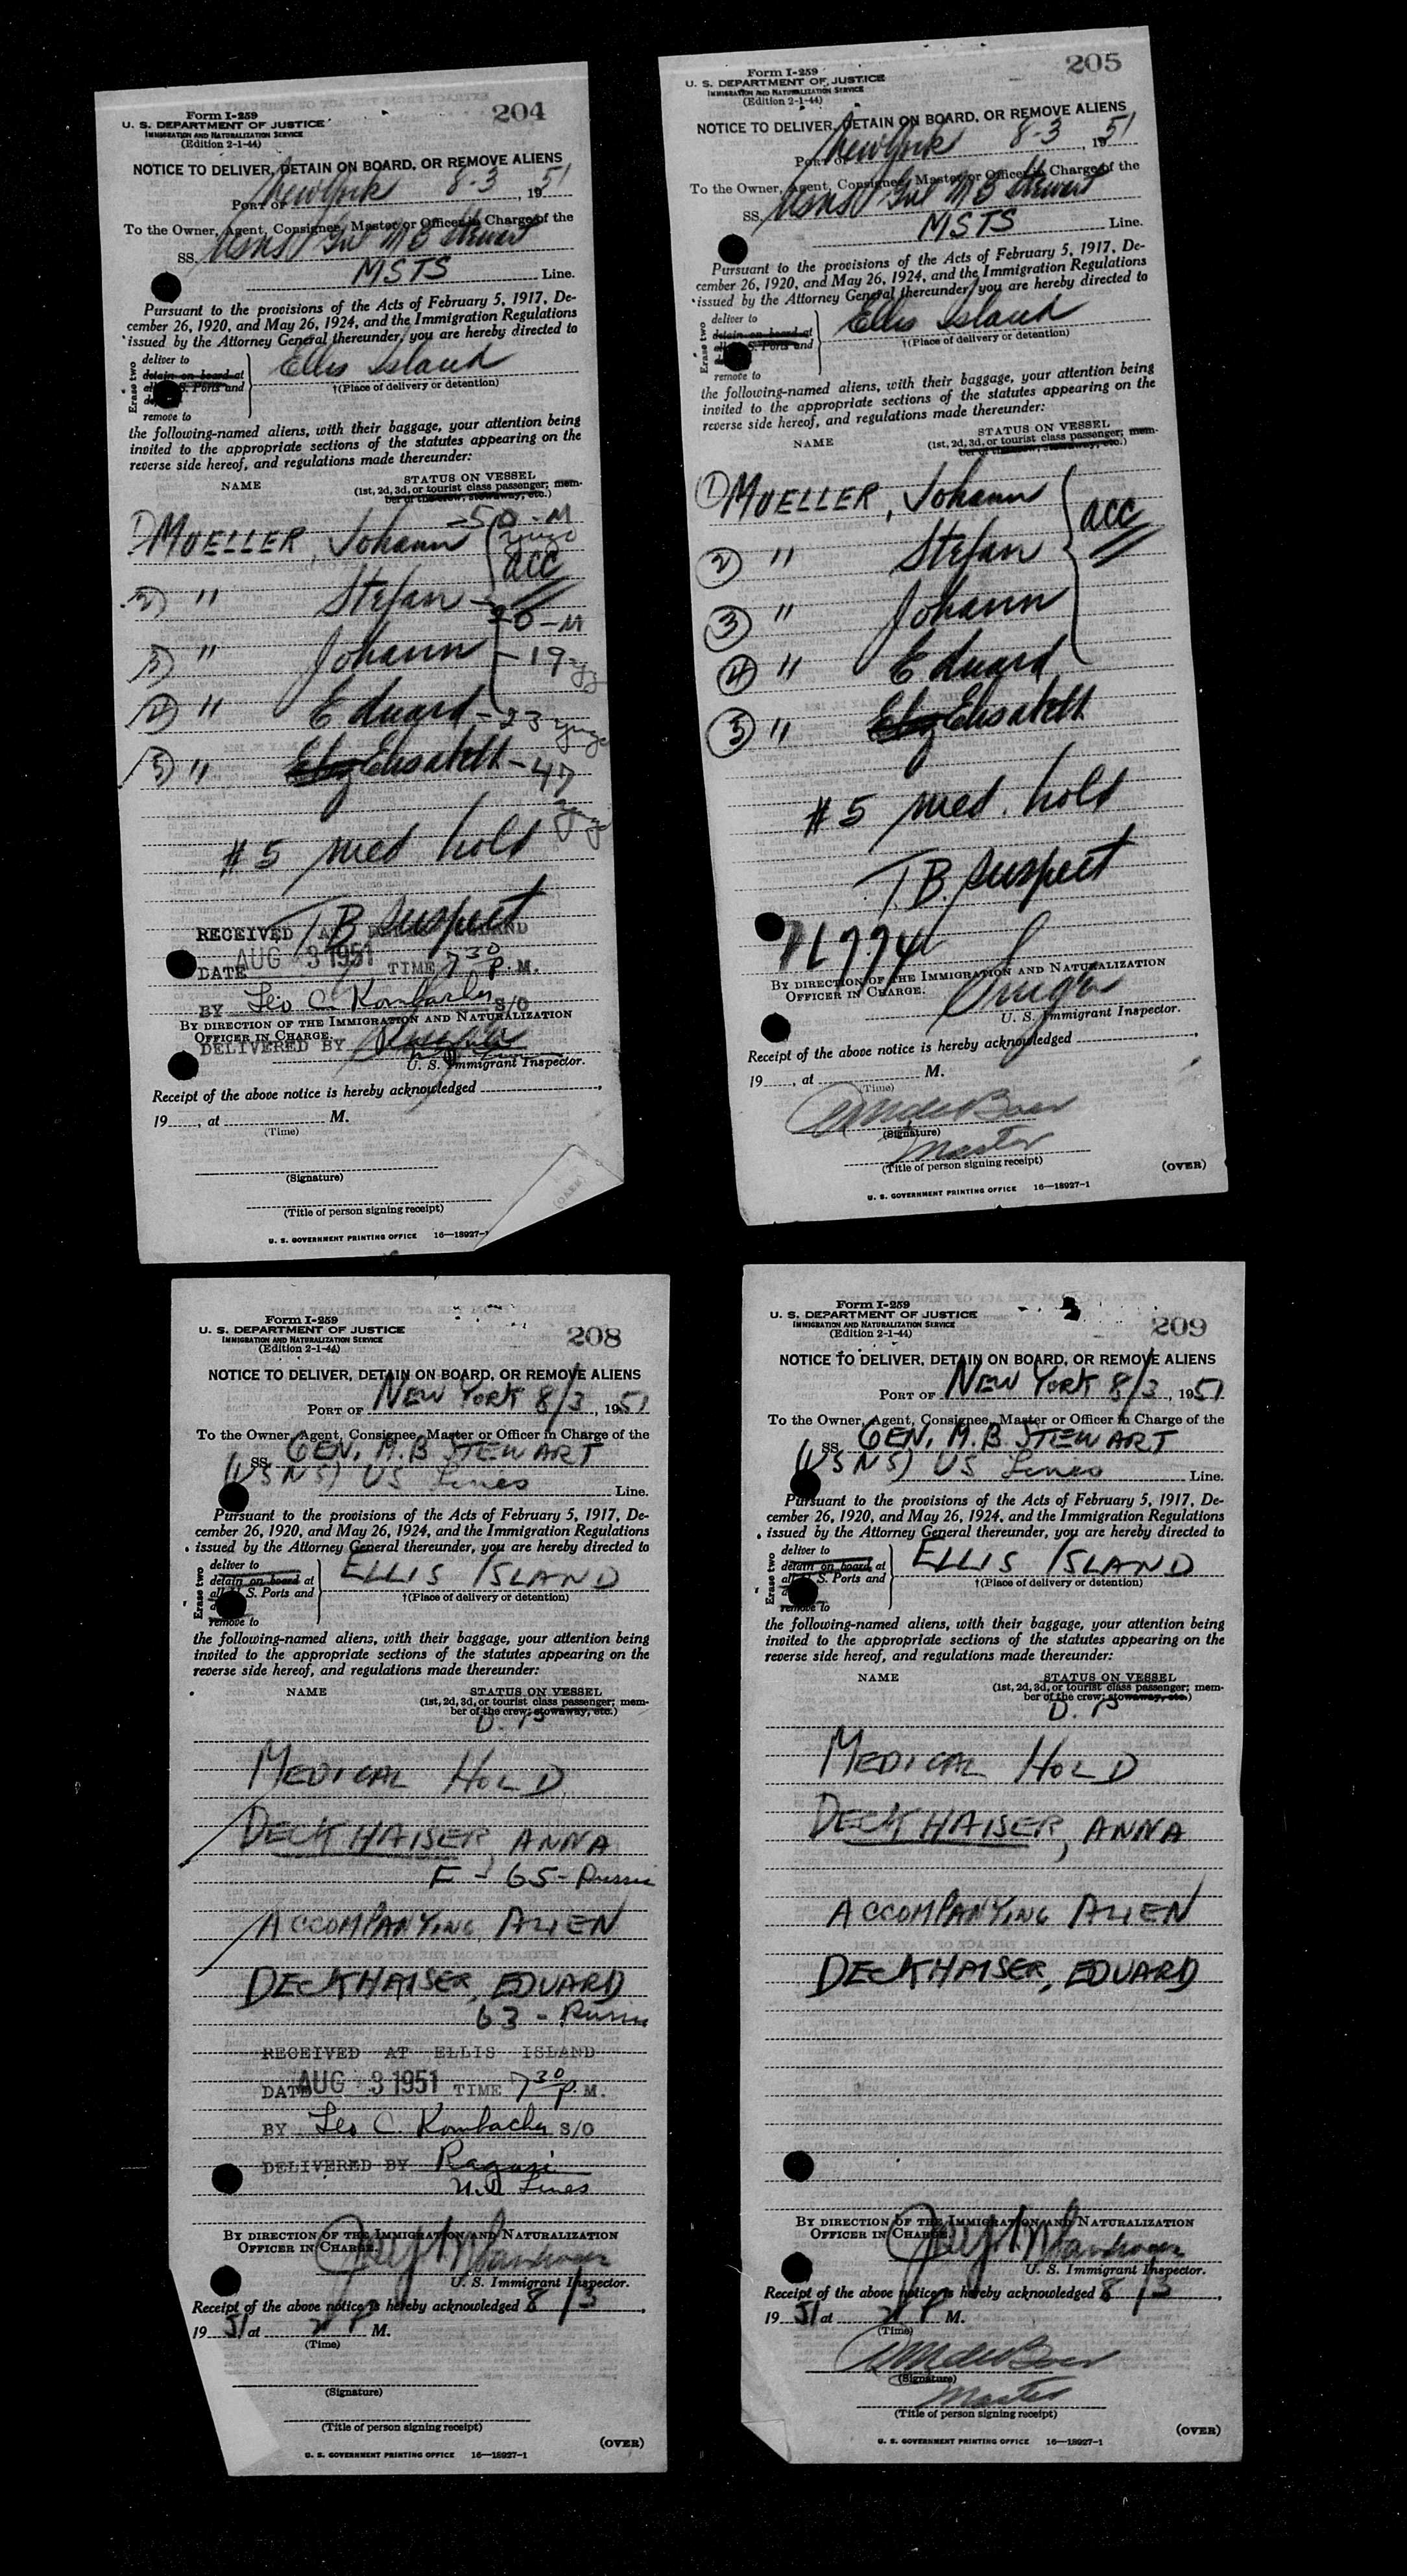 204
Form I-259
U. S. DEPARTMENT OF JUSTICE
IMMIGRATION AND NATURALIZATION SERVICE
(Edition 2-1-44)
NOTICE TO DELIVER, DETAIN ON BOARD, OR REMOVE ALIENS
PORT OF New York 8-3, 1951
To the Owner, Agent, Consignee, Master or Officer in Charge of the
SS. USNS Gnl M B Stewart
MSTS Line.
Pursuant to the provisions of the Acts of February 5, 1917, De-
cember 26, 1920, and May 26, 1924, and the Immigration Regulations
issued by the Attorney General thereunder, you are hereby directed to
Erase two
deliver to
detain on board at
all U. S. Ports and
remove to
Ellis Island
†(Place of delivery or detention)
the following-named aliens, with their baggage, your attention being
invited to the appropriate sections of the statutes appearing on the
reverse side hereof, and regulations made thereunder:
NAME
STATUS ON VESSEL
(1st, 2d, 3d, or tourist class passenger; mem-
ber of the crew; stowaway, etc.)
1) MUELLER, Johann -50-M
acc
2) " Stefan - 20-M
3) " Johann -19
4) " Eduard -23
5) " Elisabeth -47
# 5 med hold
TB Suspect
RECEIVED AT ELLIS ISLAND
DATE AUG 3 1951 TIME 7 30 P. M.
BY Leo C. Kombacher S/O
BY DIRECTION OF THE IMMIGRATION AND NATURALIZATION
OFFICER IN CHARGE.
DELIVERED BY
U. S. Immigrant Inspector.
Receipt of the above notice is hereby acknowledged
19, at M.
(Time)
(Signature)
(Title of person signing receipt)
(OVER)
U. S. GOVERNMENT PRINTING OFFICE 16—18927-1
205
Form I-259
U. S. DEPARTMENT OF JUSTICE
IMMIGRATION AND NATURALIZATION SERVICE
(Edition 2-1-44)
NOTICE TO DELIVER, DETAIN ON BOARD, OR REMOVE ALIENS
PORT OF New York 8-3, 1951
To the Owner, Agent, Consignee, Master or Officer in Charge of the
SS. USNS Gnl M B Stewart
MSTS Line.
Pursuant to the provisions of the Acts of February 5, 1917, De-
cember 26, 1920, and May 26, 1924, and the Immigration Regulations
issued by the Attorney General thereunder, you are hereby directed to
Erase two
deliver to
detain on board at
S. Ports and
remove to
Ellis Island
†(Place of delivery or detention)
the following-named aliens, with their baggage, your attention being
invited to the appropriate sections of the statutes appearing on the
reverse side hereof, and regulations made thereunder:
NAME
STATUS ON VESSEL
(1st, 2d, 3d, or tourist class passenger; mem-
ber of the crew; stowaway, etc.)
1) MUELLER, Johann
acc
2) " Stefan
3) " Johann
4) " Eduard
5) " Elisabeth
# 5 med. hold
T.B. Suspect
BY DIRECTION OF THE IMMIGRATION AND NATURALIZATION
OFFICER IN CHARGE.
U. S. Immigrant Inspector.
Receipt of the above notice is hereby acknowledged
19, at M.
(Time)
(Signature)
Master
(Title of person signing receipt)
(OVER)
U. S. GOVERNMENT PRINTING OFFICE 16—18927-1
208
Form I-259
U. S. DEPARTMENT OF JUSTICE
IMMIGRATION AND NATURALIZATION SERVICE
(Edition 2-1-44)
NOTICE TO DELIVER, DETAIN ON BOARD, OR REMOVE ALIENS
PORT OF NEW YORK 8/3, 1951
To the Owner, Agent, Consignee, Master or Officer in Charge of the
SS. GEN. M. B. STEWART
(USNS) US Lines Line.
Pursuant to the provisions of the Acts of February 5, 1917, De-
cember 26, 1920, and May 26, 1924, and the Immigration Regulations
issued by the Attorney General thereunder, you are hereby directed to
Erase two
deliver to
detain on board at
all U. S. Ports and
remove to
ELLIS ISLAND
†(Place of delivery or detention)
the following-named aliens, with their baggage, your attention being
invited to the appropriate sections of the statutes appearing on the
reverse side hereof, and regulations made thereunder:
NAME
STATUS ON VESSEL
(1st, 2d, 3d, or tourist class passenger; mem-
ber of the crew; stowaway, etc.)
D. P
MEDICAL HOLD
DECKHAISER, ANNA
F - 65 - Russia
ACCOMPANYING ALIEN
DECKHAISER, EDUARD
63 - Russia
RECEIVED AT ELLIS ISLAND
DATE AUG 3 1951 TIME 7 30 P. M.
BY Leo C. Kombacher S/O
DELIVERED BY Ragusi
U.S. Lines
BY DIRECTION OF THE IMMIGRATION AND NATURALIZATION
OFFICER IN CHARGE.
U. S. Immigrant Inspector.
Receipt of the above notice is hereby acknowledged 8/3,
19 51 at P M.
(Time)
(Signature)
(Title of person signing receipt)
(OVER)
U. S. GOVERNMENT PRINTING OFFICE 16—18927-1
209
Form I-259
U. S. DEPARTMENT OF JUSTICE
IMMIGRATION AND NATURALIZATION SERVICE
(Edition 2-1-44)
NOTICE TO DELIVER, DETAIN ON BOARD, OR REMOVE ALIENS
PORT OF NEW YORK 8/3, 1951
To the Owner, Agent, Consignee, Master or Officer in Charge of the
SS. GEN. M. B. STEWART
(USNS) US Lines Line.
Pursuant to the provisions of the Acts of February 5, 1917, De-
cember 26, 1920, and May 26, 1924, and the Immigration Regulations
issued by the Attorney General thereunder, you are hereby directed to
Erase two
deliver to
detain on board at
all U. S. Ports and
remove to
ELLIS ISLAND
†(Place of delivery or detention)
the following-named aliens, with their baggage, your attention being
invited to the appropriate sections of the statutes appearing on the
reverse side hereof, and regulations made thereunder:
NAME
STATUS ON VESSEL
(1st, 2d, 3d, or tourist class passenger; mem-
ber of the crew; stowaway, etc.)
D. P
MEDICAL HOLD
DECKHAISER, ANNA
ACCOMPANYING ALIEN
DECKHAISER, EDUARD
BY DIRECTION OF THE IMMIGRATION AND NATURALIZATION
OFFICER IN CHARGE.
U. S. Immigrant Inspector.
Receipt of the above notice is hereby acknowledged 8/3,
19 51 at P M.
(Time)
(Signature)
Master
(Title of person signing receipt)
(OVER)
U. S. GOVERNMENT PRINTING OFFICE 16—18927-1